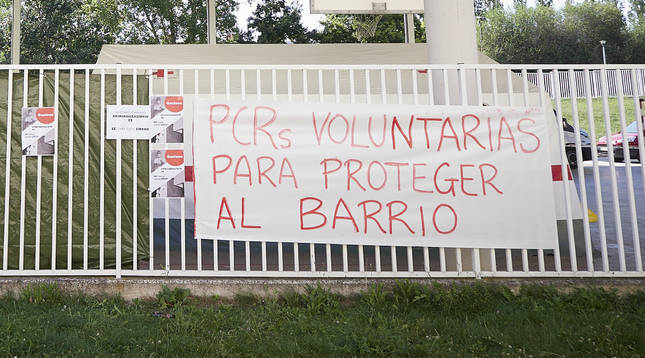 PCRs VOLUNTARIAS
PARA PROTEGER
AL BARRIO